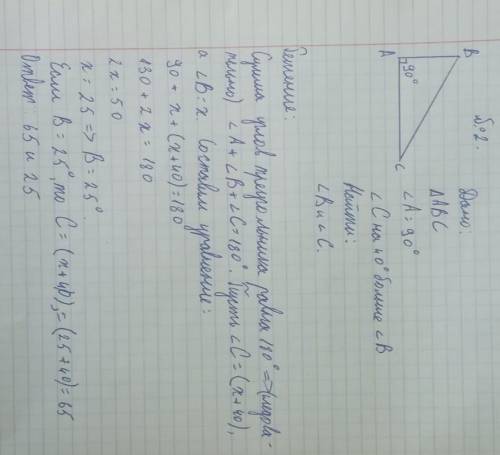 №2.
Дано:
△ABC
∠A = 90°
∠C на 40° больше ∠B
Найти:
∠B и ∠C.
B
A
90°
C
Решение:
Сумма углов треугольника равна 180° => (следова-
тельно) ∠A + ∠B + ∠C = 180°. Пусть ∠C = (x + 40),
а ∠B = x. Составим уравнение:
90 + x + (x + 40) = 180
130 + 2x = 180
2x = 50
x = 25 => B = 25°
Если B = 25°, то C = (x + 40) = (25 + 40) = 65
Ответ: 65 и 25